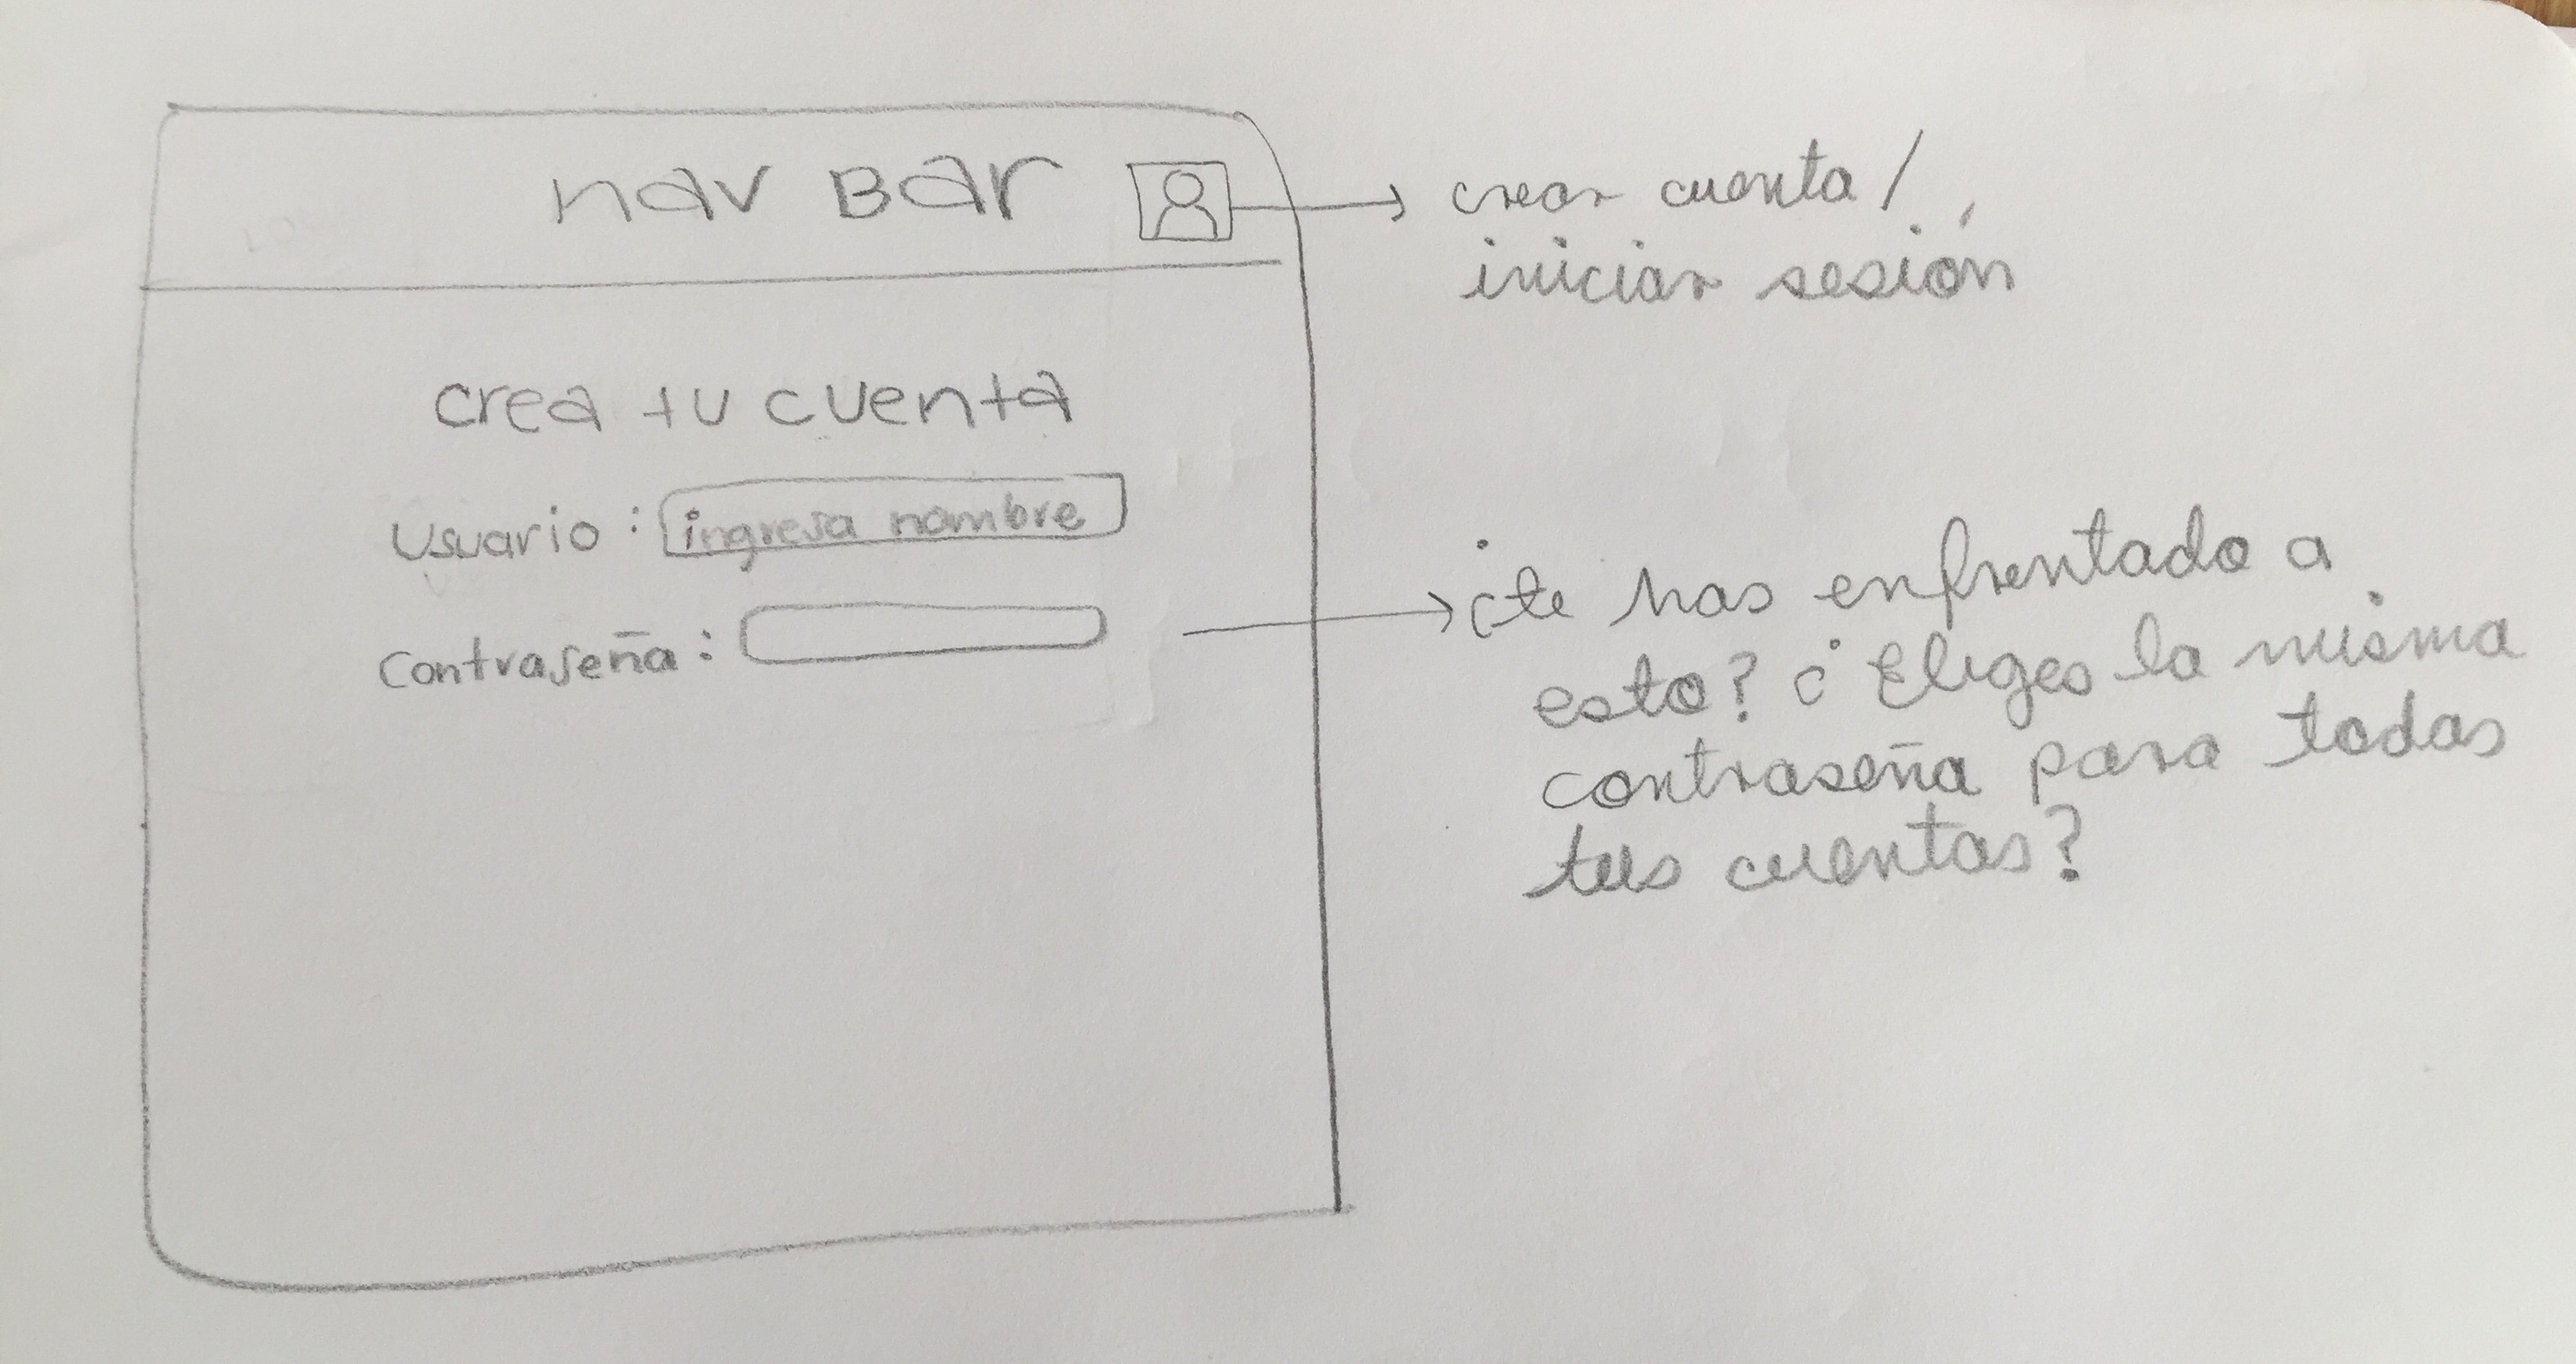 nav Bar
crear cuenta /
iniciar sesión
crea tu cuenta
Usuario : ingresa nombre
contraseña :
¿te has enfrentado a
esto? ¿Eliges la misma
contraseña para todas
tus cuentas?